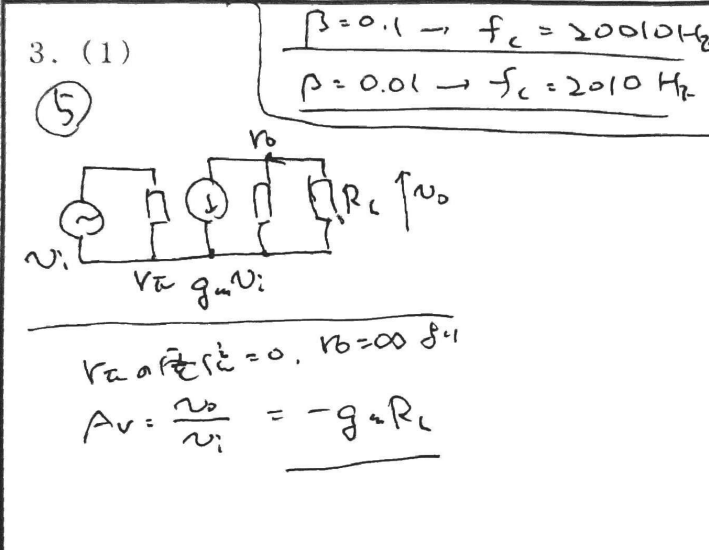 β=0.1 → fc = 20010Hz
3. (1)
β=0.01 → fc = 2010 Hz
5
ro
vi
RL
vo
rπ gmvi
rπの =0, ro=∞ より
Av = vo/vi = -gmRL